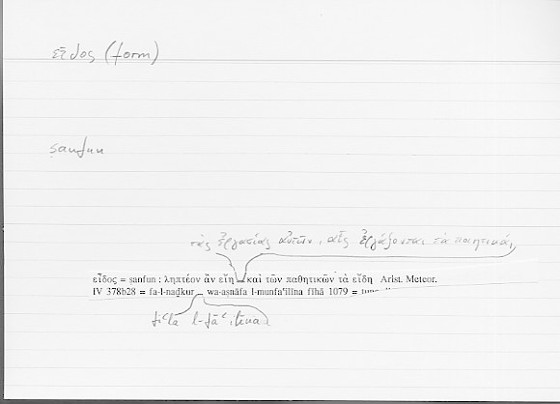 εἶδος (form)
ṣanfun
τὰς ἐργασίας αὐτῶν, αἷς ἐργάζονται τὰ ποιητικά,
εἶδος = ṣanfun : ληπτέον ἂν εἴη ... καὶ τῶν παθητικῶν τὰ εἴδη Arist. Meteor.
IV 378b28 = fa-l-naḏkur ... wa-aṣnāfa l-munfaʿilīna fīhā 1079 =
fiʿla l-fāʿilīna